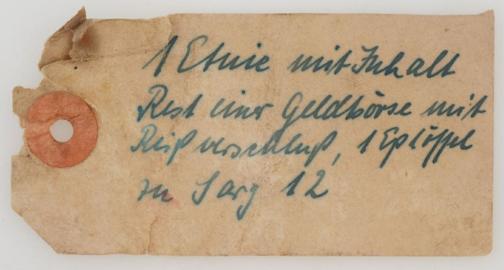 1 Etuie mit Inhalt
Rest einer Geldbörse mit
Reißverschluß, 1 Eßlöffel
zu Sarg 12